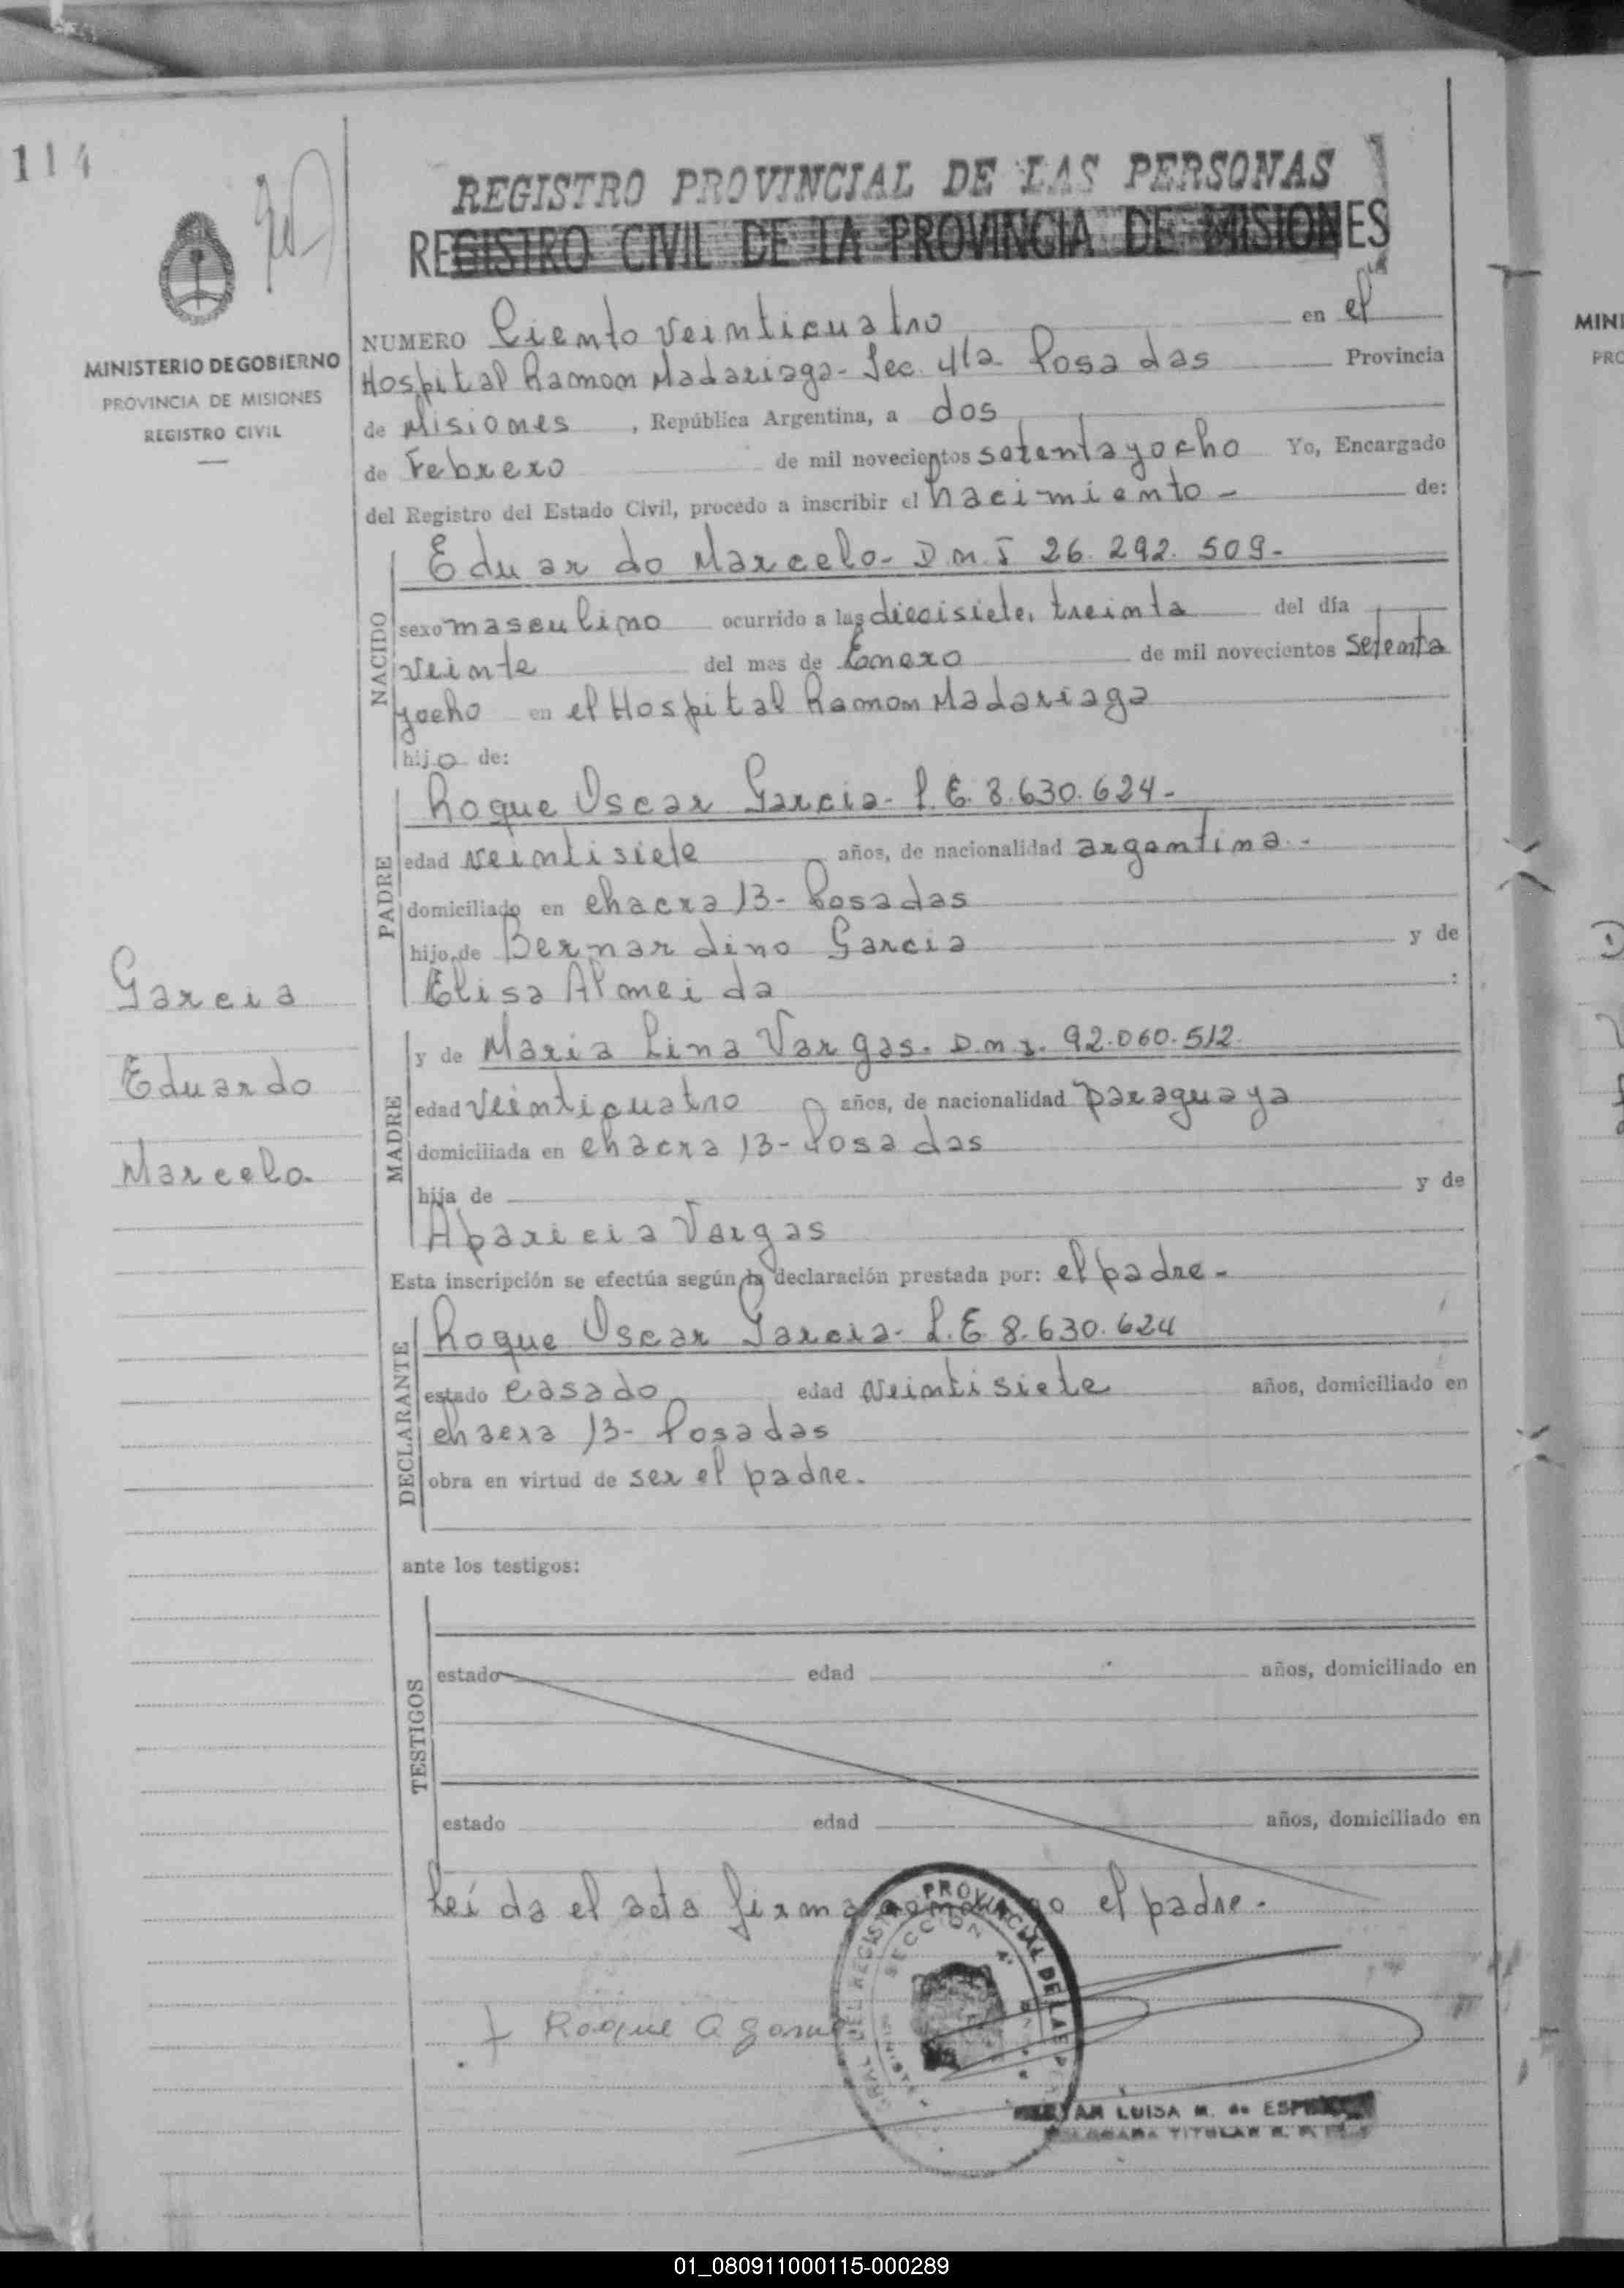 114
REGISTRO PROVINCIAL DE LAS PERSONAS
REGISTRO CIVIL DE LA PROVINCIA DE MISIONES
MINISTERIO DE GOBIERNO
PROVINCIA DE MISIONES
REGISTRO CIVIL
NUMERO Ciento veinticuatro en el
Hospital Ramon Madariaga- Sec. 4ta Posadas Provincia
de Misiones, República Argentina, a dos
de Febrero de mil novecientos setenta y ocho Yo, Encargado
del Registro del Estado Civil, procedo a inscribir el nacimiento - de:
NACIDO
Eduardo Marcelo- D.N.I 26.292.509-
sexo masculino ocurrido a las diecisiete, treinta del día
veinte del mes de Enero de mil novecientos setenta
y ocho en el Hospital Ramon Madariaga
hijo de:
PADRE
Roque Oscar Garcia- L.E. 8.630.624-
edad veintisiete años, de nacionalidad argentina.-
domiciliado en chacra 13- Posadas
hijo de Bernardino Garcia y de
Elisa Almeida :
Garcia
Eduardo
Marcelo.
MADRE
y de Maria Lina Vargas. D.N.I. 92.060.512.
edad veinticuatro años, de nacionalidad paraguaya
domiciliada en chacra 13- Posadas
hija de y de
Aparicia Vargas
Esta inscripción se efectúa según la declaración prestada por: el padre-
DECLARANTE
Roque Oscar Garcia- L.E. 8.630.624
estado casado edad veintisiete años, domiciliado en
chacra 13- Posadas
obra en virtud de ser el padre.
ante los testigos:
TESTIGOS
estado edad años, domiciliado en
estado edad años, domiciliado en
Leída el acta firma conmigo el padre.
PROVINCIAL DE LAS
SECCION 4ª
Roque
LUISA M. de
TITULAR
MINI
PRO
01_080911000115-000289